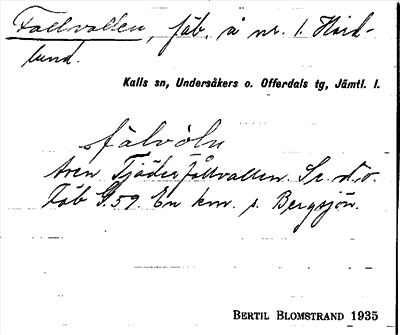 Fallvallen, fäb. å nr. 1. Nord-
lund.
Kalls sn, Undersåkers o. Offerdals tg, Jämtl. l.
fälvòln
Även Tjäderfallvallen. Se d.o.
Fäb G.59. En km. s. Bergsjön.
BERTIL BLOMSTRAND 1935